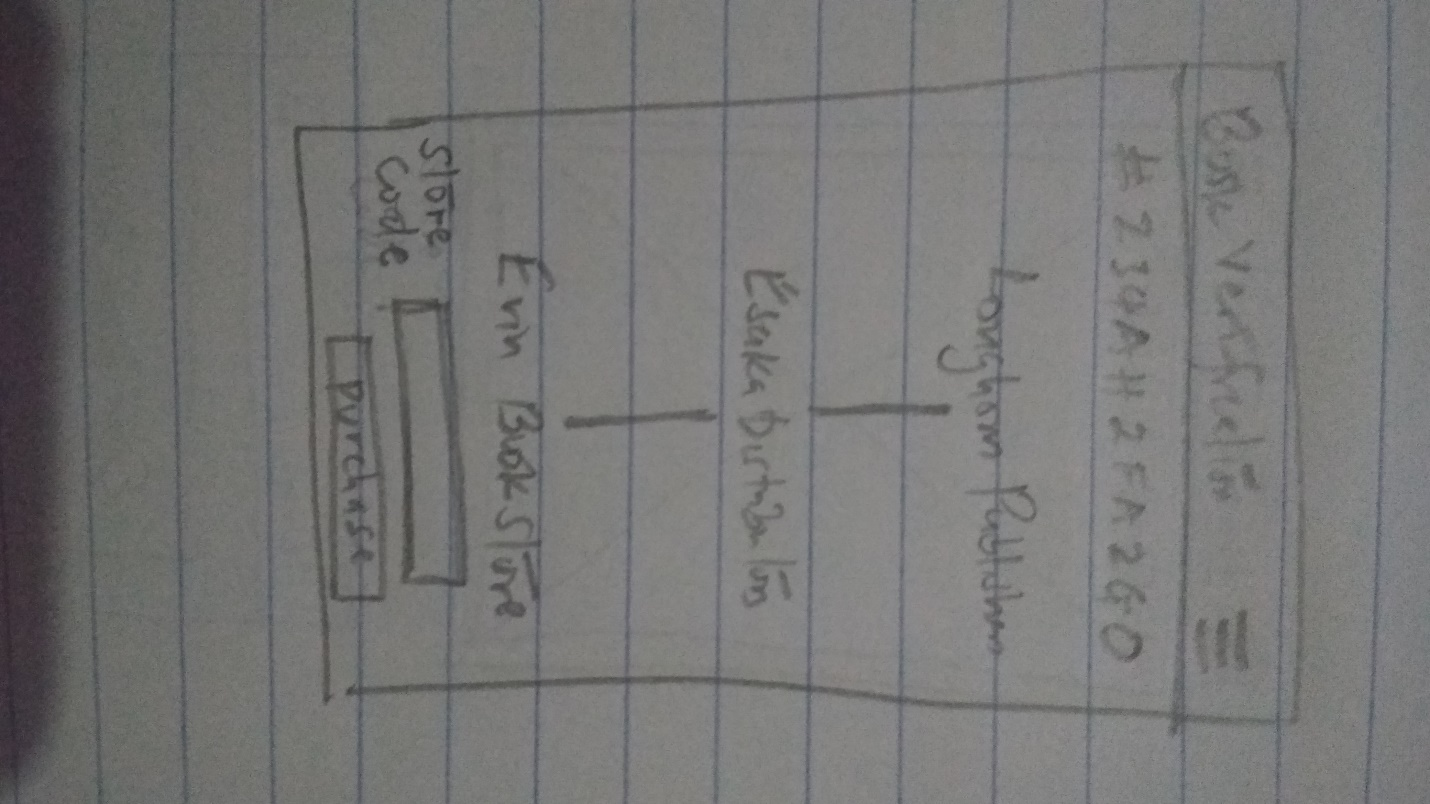 Book Verification
# 234AH2FA2G0
Longhorn Publishers
Esuka Distribution
Evin Book Store
Store
Code
purchase